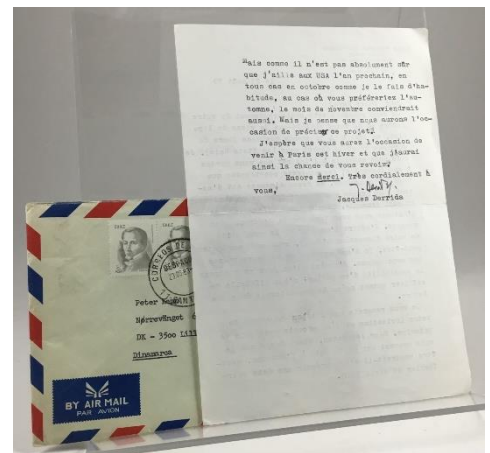 Mais comme il n'est pas absolument sûr
que j'aille aux USA l'an prochain, en
tous cas en octobre comme je le fais d'ha-
bitude, au cas où vous préféreriez l'au-
tomne, le mois de novembre conviendrait
aussi. Mais je pense que nous aurons l'oc-
casion de préciser ce projet.
J'espère que vous aurez l'occasion de
venir à Paris cet hiver et que j'aurai
ainsi la chance de vous revoir.
Encore merci. Très cordialement à
vous,
Jacques Derrida
CORREOS
Peter
Nørrevänget
DK - 3500
Dinamarca
BY AIR MAIL
PAR AVION